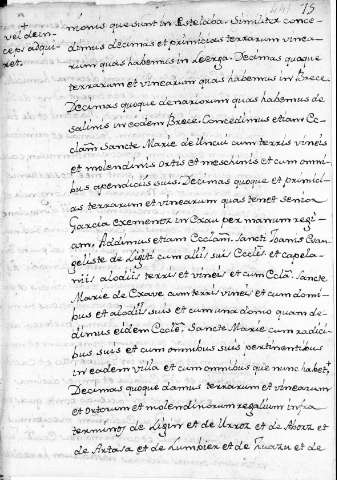 441 15
+
vel dein-
ceps adqui
ret.
monis que sunt in Estelaba. Similiter conce-
dimus decimas et primicias terrarum vinea-
rum quas habemus in Lerga. Decimas quoque
terrarum et vinearum quas habemus in Brece.
Decimas quoque denariorum quas habemus de
salinis in eodem Brece. Concedimus etiam Ec-
clam̄ Sancte Marie de Uncui cum terris vineis
et molendinis ortis et meschinis et cum omni-
bus apendiciis suis. Decimas quoque et primici-
as terrarum et vinearum quas tenet senior
Garcia exemenoz in Exau per manum regi-
am. Addimus etiam Ecclam̄. Sancti Joanis Evan-
geliste de Ligiti cum aliis suis Ecclēs et capela-
niis alodiis terris et vineis et cum Ecclā. Sancte
Marie de Exave cum terris vineis et cum domi-
bus et alodiis suis et cum una domo quam de-
dimus eidem Ecclē. Sancte Marie cum radici-
bus suis et cum omnibus suis pertinentibus
in eadem villa et cum omnibus que nunc habet +
Decimas quoque damus terrarum et vinearum
et ortorum et molendinorum regalium infra
terminos de Ligin et de Urroz et de Aborz et
de Artasa et de Lumbier et de et de